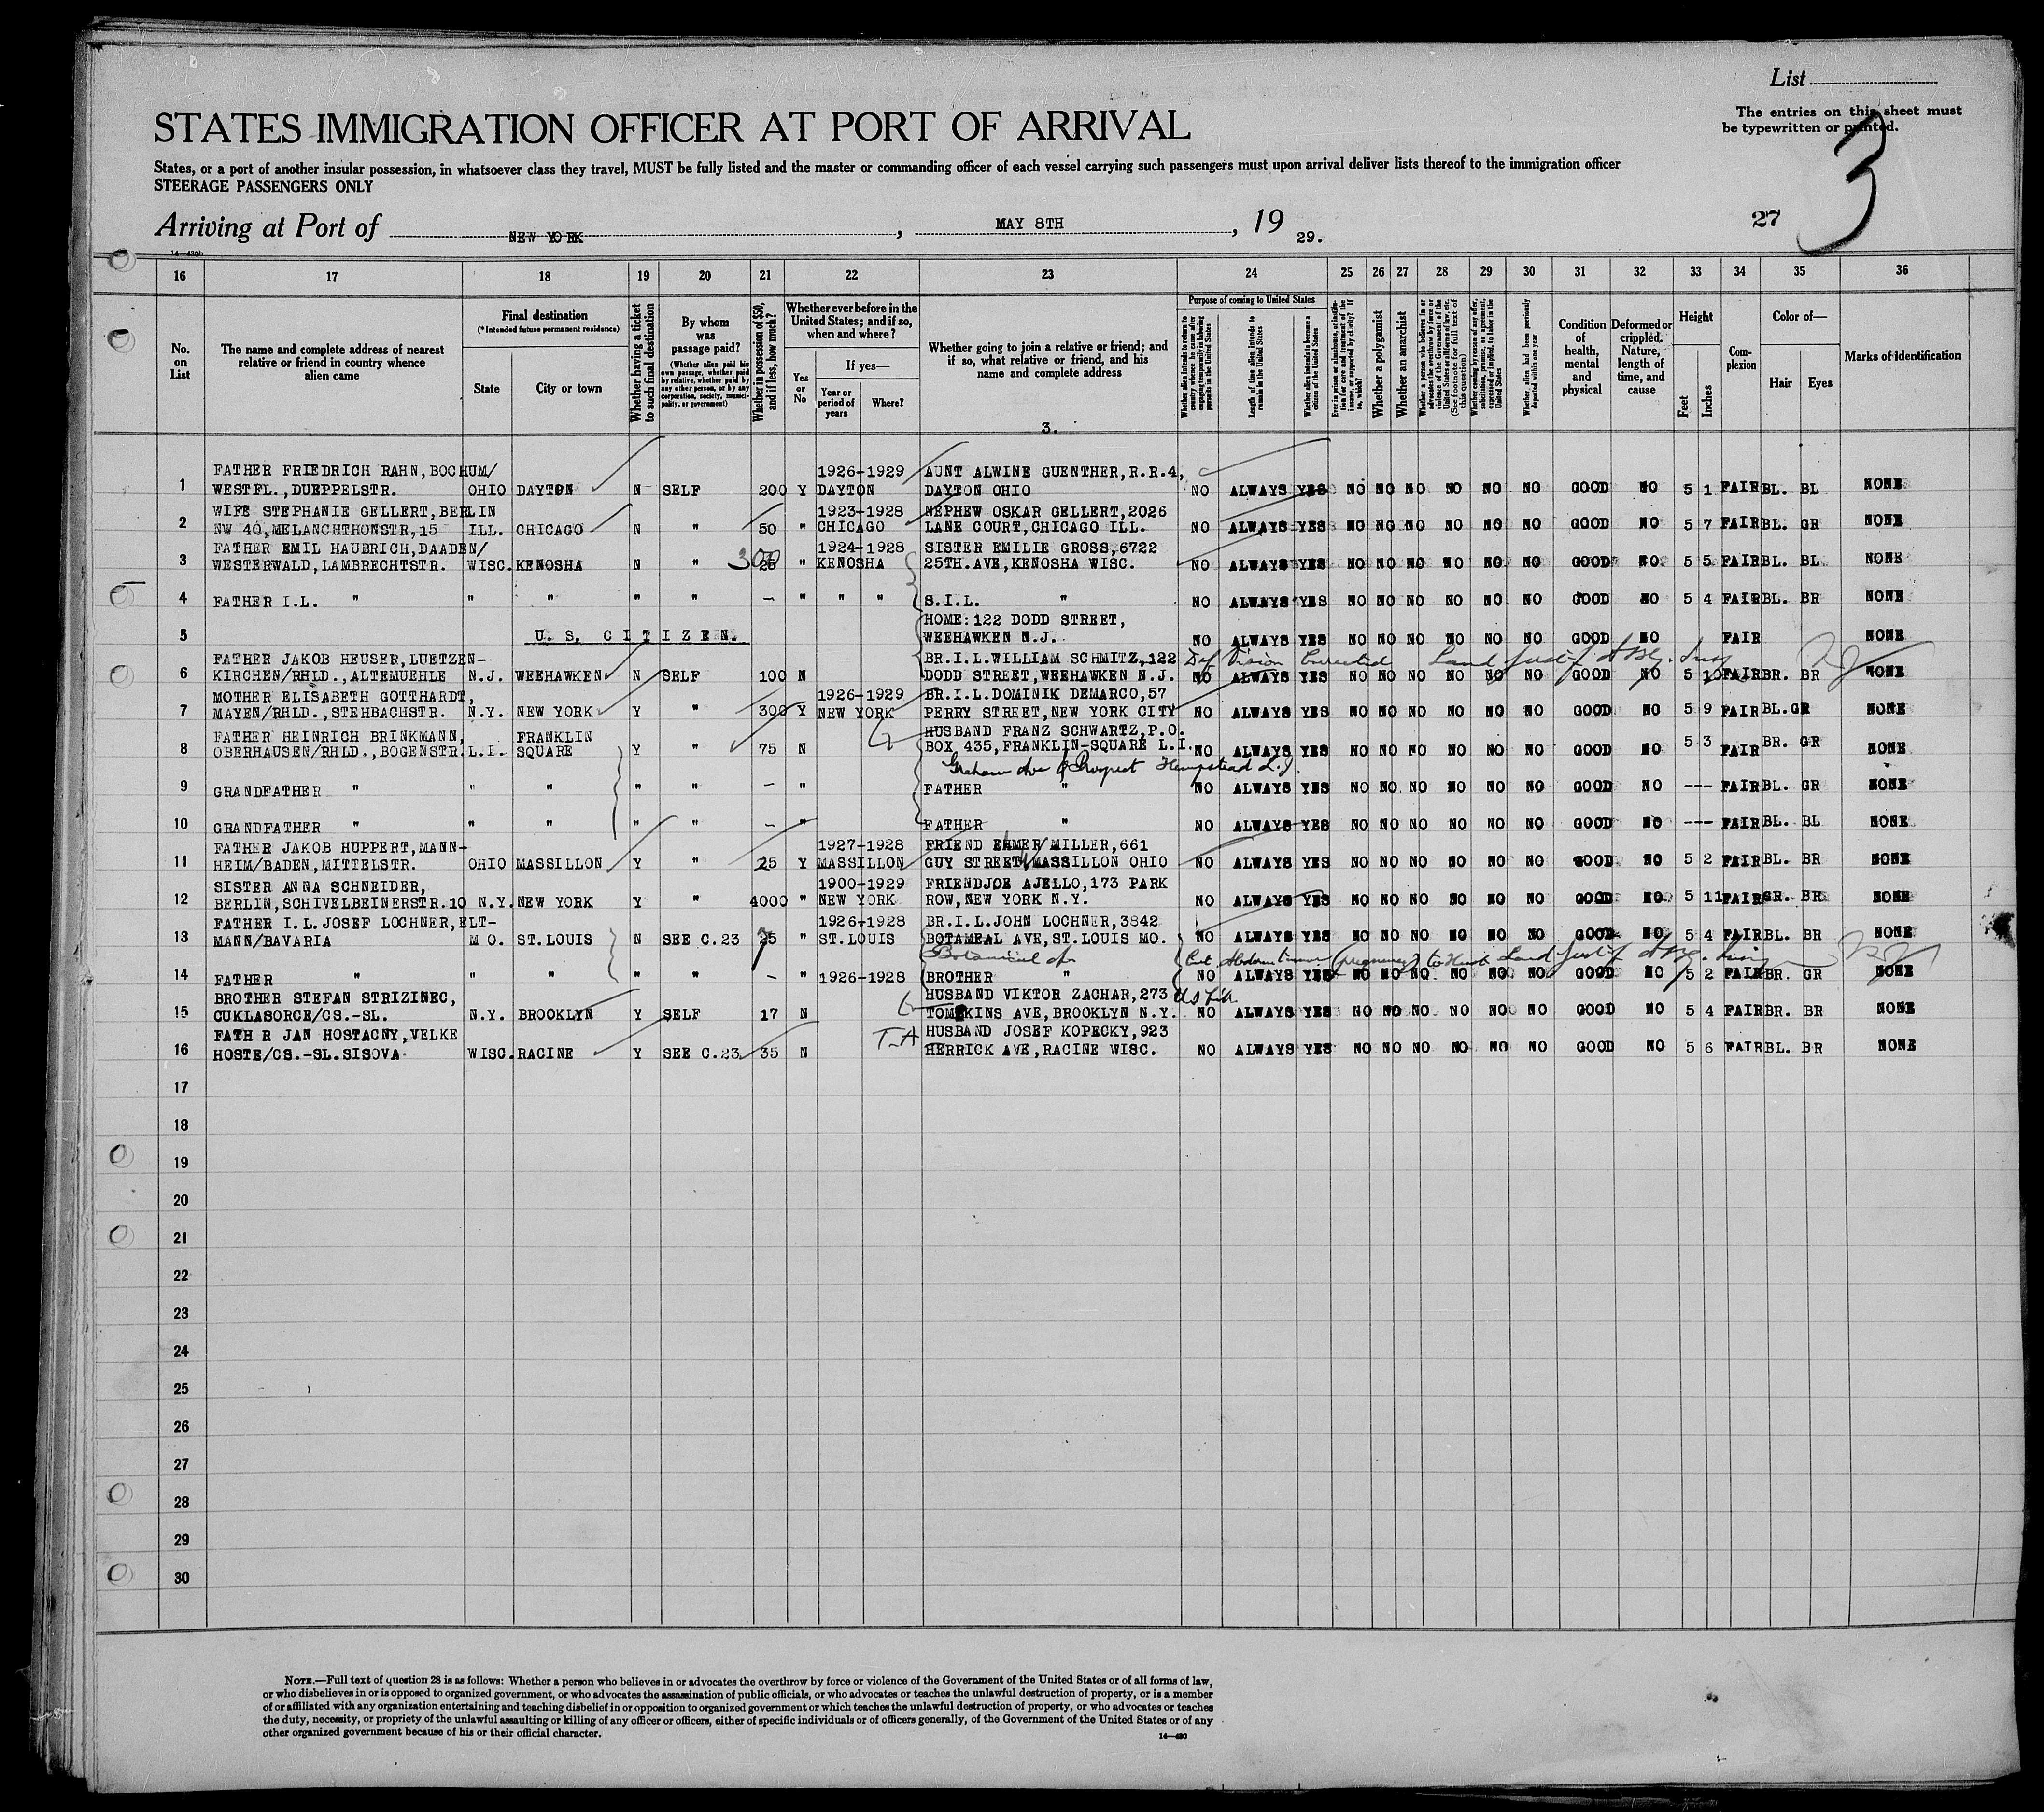 List
The entries on this sheet must
be typewritten or printed.
3
STATES IMMIGRATION OFFICER AT PORT OF ARRIVAL
States, or a port of another insular possession, in whatsoever class they travel, MUST be fully listed and the master or commanding officer of each vessel carrying such passengers must upon arrival deliver lists thereof to the immigration officer
STEERAGE PASSENGERS ONLY
Arriving at Port of NEW YORK, MAY 8TH, 19 29. 27
14—430b
16 17 18 19 20 21 22 23 24 25 26 27 28 29 30 31 32 33 34 35 36
No. on List
The name and complete address of nearest relative or friend in country whence alien came
Final destination (*Intended future permanent residence)
State
City or town
Whether having a ticket to such final destination
By whom was passage paid?
(Whether alien paid his own passage, whether paid by relative, whether paid by any other person, or by any corporation, society, municipality, or government)
Whether in possession of $50, and if less, how much?
Whether ever before in the United States; and if so, when and where?
Yes or No
If yes—
Year or period of years
Where?
Whether going to join a relative or friend; and if so, what relative or friend, and his name and complete address
3.
Purpose of coming to United States
Whether alien intends to return to country whence he came after engaging temporarily in laboring pursuits in the United States
Length of time alien intends to remain in the United States
Whether alien intends to become a citizen of the United States
Whether a polygamist
Whether an anarchist
Whether alien had been previously deported within one year
Condition of health, mental and physical
Deformed or crippled. Nature, length of time, and cause
Height
Feet
Inches
Complexion
Color of—
Hair
Eyes
Marks of identification
FATHER FRIEDRICH RAHN, BOCHUM/ 1926-1929 AUNT ALWINE GUENTHER, R.R.4,
1 WESTFL., DUEPPELSTR. OHIO DAYTON N SELF 200 Y DAYTON DAYTON OHIO NO ALWAYS YES NO NO NO NO NO NO GOOD NO 5 1 FAIR BL. BL NONE
WIFE STEPHANIE GELLERT, BERLIN 1923-1928 NEPHEW OSKAR GELLERT, 2026
2 NW 40, MELANCHTHONSTR, 15 ILL. CHICAGO N " 50 " CHICAGO LANE COURT, CHICAGO ILL. NO ALWAYS YES NO NO NO NO NO NO GOOD NO 5 7 FAIR BL. GR NONE
FATHER EMIL HAUBRICH, DAADEN/ 1924-1928 SISTER EMILIE GROSS, 6722
3 WESTERWALD, LAMBRECHTSTR. WISC. KENOSHA N " 300 25 " KENOSHA 25TH. AVE, KENOSHA WISC. NO ALWAYS YES NO NO NO NO NO NO GOOD NO 5 5 FAIR BL. BL NONE
4 FATHER I.L. " " " " " — " " " S.I.L. " NO ALWAYS YES NO NO NO NO NO NO GOOD NO 5 4 FAIR BL. BR NONE
HOME: 122 DODD STREET,
5 U. S. CITIZEN. WEEHAWKEN N.J. NO ALWAYS YES NO NO NO NO NO NO GOOD NO FAIR NONE
FATHER JAKOB HEUSER, LUETZEN- BR.I.L. WILLIAM SCHMITZ, 122 Def Vision Corrected
6 KIRCHEN/RHLD., ALTEMUEHLE N.J. WEEHAWKEN N SELF 100 N DODD STREET, WEEHAWKEN N.J. NO ALWAYS YES NO NO NO NO NO NO GOOD NO 5 10 FAIR BR. BR NONE
MOTHER ELISABETH GOTTHARDT, 1926-1929 BR.I.L. DOMINIK DEMARCO, 57
7 MAYEN/RHLD., STEHBACHSTR. N.Y. NEW YORK Y " 300 Y NEW YORK PERRY STREET, NEW YORK CITY NO ALWAYS YES NO NO NO NO NO NO GOOD NO 5 9 FAIR BL. GR NONE
FATHER HEINRICH BRINKMANN, FRANKLIN HUSBAND FRANZ SCHWARTZ, P.O.
8 OBERHAUSEN/RHLD., BOGENSTR. L.I. SQUARE Y " 75 N BOX 435, FRANKLIN-SQUARE L.I. NO ALWAYS YES NO NO NO NO NO NO GOOD NO 5 3 FAIR BR. GR NONE
Graham Ave & Prospect Hempstead L.I.
9 GRANDFATHER " " " " " — " FATHER " NO ALWAYS YES NO NO NO NO NO NO GOOD NO --- FAIR BL. GR NONE
10 GRANDFATHER " " " " " — " FATHER " NO ALWAYS YES NO NO NO NO NO NO GOOD NO --- FAIR BL. BL NONE
FATHER JAKOB HUPPERT, MANN- 1927-1928 FRIEND ELMER MILLER, 661
11 HEIM/BADEN, MITTELSTR. OHIO MASSILLON Y " 25 Y MASSILLON GUY STREET, MASSILLON OHIO NO ALWAYS YES NO NO NO NO NO NO GOOD NO 5 2 FAIR BL. BR NONE
SISTER ANNA SCHNEIDER, 1900-1929 FRIENDJOE AJELLO, 173 PARK
12 BERLIN, SCHIVELBEINERSTR. 10 N.Y. NEW YORK Y " 4000 " NEW YORK ROW, NEW YORK N.Y. NO ALWAYS YES NO NO NO NO NO NO GOOD NO 5 11 FAIR GR. BR NONE
FATHER I.L. JOSEF LOCHNER, ELT- 1926-1928 BR.I.L. JOHN LOCHNER, 3842
13 MANN/BAVARIA MO. ST.LOUIS N SEE C.23 25 " ST.LOUIS BOTAMEAL AVE, ST.LOUIS MO. NO ALWAYS YES NO NO NO NO NO NO GOOD NO 5 4 FAIR BL. BR NONE
Botanical (pregnancy)
14 FATHER " " " " " — " 1926-1928 BROTHER " NO ALWAYS YES NO NO NO NO NO NO GOOD NO 5 2 FAIR BR. GR NONE
BROTHER STEFAN STRIZINEC, HUSBAND VIKTOR ZACHAR, 273
15 CUKLASORCE/CS.-SL. N.Y. BROOKLYN Y SELF 17 N TOMPKINS AVE, BROOKLYN N.Y. NO ALWAYS YES NO NO NO NO NO NO GOOD NO 5 4 FAIR BR. BR NONE
FATH R JAN HOSTACNY, VELKE T-A HUSBAND JOSEF KOPECKY, 923
16 HOSTE/CS.-SL. SISOVA WISC. RACINE Y SEE C.23 35 N HERRICK AVE, RACINE WISC. NO ALWAYS YES NO NO NO NO NO NO GOOD NO 5 6 FAIR BL. BR NONE
17
18
19
20
21
22
23
24
25
26
27
28
29
30
NOTE.—Full text of question 28 is as follows: Whether a person who believes in or advocates the overthrow by force or violence of the Government of the United States or of all forms of law,
or who disbelieves in or is opposed to organized government, or who advocates the assassination of public officials, or who advocates or teaches the unlawful destruction of property, or is a member
of or affiliated with any organization entertaining and teaching disbelief in or opposition to organized government or which teaches the unlawful destruction of property, or who advocates or teaches
the duty, necessity, or propriety of the unlawful assaulting or killing of any officer or officers, either of specific individuals or of officers generally, of the Government of the United States or of any
other organized government because of his or their official character.
14—430